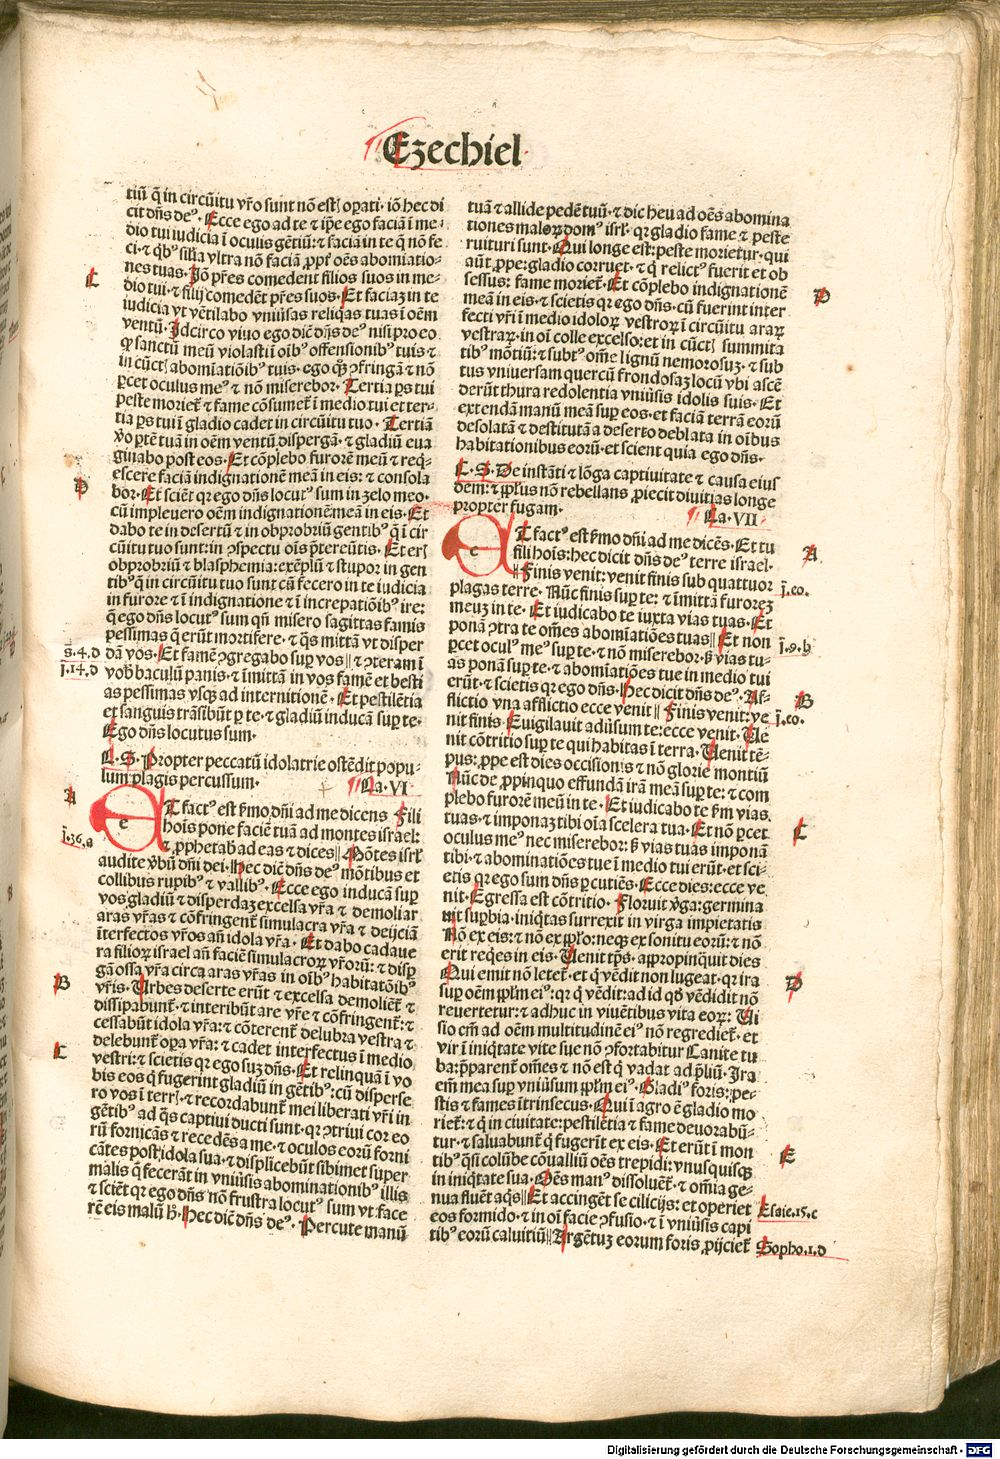 Ezechiel
tiū q̄ in circūitu vr̄o sunt nō estꝭ oꝑati· iō hec di
cit dn̄s deꝰ· Ecce ego ad te ⁊ ip̄e ego faciā ī me-
dio tui iudicia ī oculis gētiū: ⁊ faciā in te q̄ nō fe
ci· ⁊ qbꝰ silīa vltra nō faciā ꝓpt̄ oēs abomīatio-
nes tuas· Jō pr̄es comedent filios suos in me-
dio tui· ⁊ filij comedēt pr̄es suos· Et faciaʒ in te
iudicia ⁊ vētilabo vniūsas reliqas tuas ī oēm
ventū· Jdcirco viuo ego diē dn̄s deꝰ nisi pro eo
ꝙ sanctū meū violasti ī oībꝰ offensionibꝰ tuis ⁊
in cūctꝭ abomīatiōibꝰ tuis· ego qꝫ ꝯfringā ⁊ nō
ꝑcet oculus meꝰ ⁊ nō miserebor· Tertia ꝑs tui
peste morieť ⁊ fame cōsumeť ī medio tui et ter-
tia ꝑs tui ī gladio cadet in circūitu tuo· Tertiā
v̄o ꝑtē tuā in oēm ventū dispergā· ⁊ gladiū eua
ginabo post eos· Et cōplebo furorē meū ⁊ req̄-
escere faciā indignationē meā in eis: ⁊ consola
bor· Et sciēt qꝛ ego dn̄s locutꝰ sum in zelo meo·
cū impleuero oēm indignationē meā in eis· Et
dabo te in desertū ⁊ in obprobriū gentibꝰ q̄ ī cir
cūitu tuo sunt: in ꝯspectu oīs p̄tereūtis· Et erꝭ
obprobriū ⁊ blasphemia: exēplū ⁊ stupor in gen
tibꝰ q̄ in circūitu tuo sunt cū fecero in te iudicia
in furore ⁊ ī indignatione ⁊ ī increpatiōibꝰ ire:
Q̄ ego dn̄s locutꝰ sum qn̄ misero sagittas famis
pessimas q̄ erūt mortifere· ⁊ q̄s mittā vt disper
dā vos· Et famē ꝯgregabo suꝑ vos ‖ ⁊ ꝯteram ī
vob̄ baculū panis· ⁊ īmittā in vos famē et besti
as pessimas vsqꝫ ad internitionē· Et pestilētia
et sanguis trāsibūt ꝑ te· ⁊ gladiū inducā suꝑ te·
Ego dn̄s locutus sum·
L· S· Propter peccatū idolatrie ostēdit popu-
lum plagis percussum·
Ca· VI
e Et factꝰ est ẜmo dn̄i ad me dicens Fili
hoīs pone faciē tuā ad montes israel:
⁊ ꝓphetab̄ ad eas ⁊ dices ‖ Mōtes isrl̄
audite v̄bū dn̄i dei· Hec diē dn̄s deꝰ mōtibus et
collibus rupibꝰ ⁊ vallibꝰ· Ecce ego inducā suꝑ
vos gladiū ⁊ disperdaʒ excelsa vr̄a ⁊ demoliar
aras vr̄as ⁊ cōfringenť simulacra vr̄a ⁊ deijciā
īterfectos vr̄os an̄ idola vr̄a· Et dabo cadaue
ra filioꝝ israel an̄ faciē simulacroꝝ vr̄orū: ⁊ disꝑ
gā ossa vr̄a circa aras vr̄as in oībꝰ habitatōibꝰ
vr̄is· Urbes deserte erūt ⁊ excelsa demolieť ⁊
dissipabunť· ⁊ interibūt are vr̄e ⁊ cōfringenť: ⁊
cessabūt idola vr̄a: ⁊ cōterenť delubra vestra ⁊
delebunť oꝑa vr̄a: ⁊ cadet interfectus ī medio
vestri: ⁊ scietis qꝛ ego suʒ dn̄s· Et relinquā ī vo
bis eos q̄ fugerint gladiū in gētibꝰ: cū disperse
ro vos ī terrꝭ· ⁊ recordabunť mei liberati vr̄i in
gētibꝰ ad q̄s captiui ducti sunt· qꝛ ꝯtriui cor eo
rū fornicās ⁊ recedēs a me· ⁊ oculos eorū forni
cātes post idola sua· ⁊ displicebūt sibimet super
malis q̄ fecerāt in vniūsis abominationibꝰ illis
⁊ sciēt qꝛ ego dn̄s nō frustra locutꝰ sum vt face
rē eis malū h̄· Hec diē dn̄s deꝰ· Percute manū
tuā ⁊ allide pedē tuū· ⁊ dic heu ad oēs abomina
tiones maloꝝ domꝰ isrl̄· qꝛ gladio fame ⁊ peste
ruituri sunt· Qui longe est: peste morietur· qui
aūt ꝓpe: gladio corruet· ⁊ q̄ relictꝰ fuerit et ob
sessus: fame morieť· Et cōplebo indignationē
meā in eis· ⁊ scietis qꝛ ego dn̄s· cū fuerint inter
fecti vr̄i ī medio idoloꝝ vestroꝝ ī circūitu araꝝ
vestraꝝ· in oī colle excelso: et in cūctꝭ summita
tibꝰ mōtiū: ⁊ subtꝰ om̄e lignū nemorosuʒ· ⁊ sub
tus vniuersam quercū frondosaʒ locū vbi ascē
derūt thura redolentia vniūsis idolis suis· Et
extendā manū meā suꝑ eos· et faciā terrā eorū
desolatā ⁊ destitutā a deserto deblata in oībus
habitationibus eorū· et scient quia ego dn̄s·
L· S· De instāti ⁊ lōga captiuitate ⁊ causa eius
dem: ⁊ ꝓplꝰus nō rebellans ꝓiecit diuitias longe
propter fugam·
Ca· VII
e Et factꝰ est ẜmo dn̄i ad me dicēs· Et tu
fili hoīs: hec dicit dn̄s deꝰ terre israel·
‖ Finis venit: venit finis sub quattuor
plagas terre· Nūc finis suꝑ te: ⁊ īmittā furoreʒ
meuʒ in te· Et iudicabo te iuxta vias tuas· Et
ponā ꝯtra te om̄es abomīatiōes tuas ‖ Et non
ꝑcet oculꝰ meꝰ suꝑ te· ⁊ nō miserebor· ẜ vias tu-
as ponā suꝑ te· ⁊ abomīatiōes tue in medio tui
erūt· ⁊ scietis qꝛ ego dn̄s· Hec dicit dn̄s deꝰ· Af-
flictio vna afflictio ecce venit ‖ Finis venit: ve
nit finis· Euigilauit adūsum te: ecce venit· Ue
nit cōtritio suꝑ te qui habitas ī terra· Uenit tē-
pus: ꝓpe est dies occisionis ⁊ nō glorie montiū
Nūc de ꝓpinquo effundā irā meā suꝑ te: ⁊ com
plebo furorē meū in te· Et iudicabo te ẜm vias
tuas· ⁊ imponaʒ tibi oīa scelera tua· Et nō ꝑcet
oculus meꝰ nec miserebor: ẜ vias tuas imponā
tibi· ⁊ abominatiōes tue ī medio tui erūt· et sci-
etis qꝛ ego sum dn̄s ꝑcutiēs· Ecce dies: ecce ve
nit· Egressa est cōtritio· Floruit v̄ga: germina
uit suꝑbia· iniq̄tas surrexit in virga impietatis
Nō ex eis: ⁊ nō ex ꝓplo: neqꝫ ex sonitu eorū: ⁊ nō
erit reqes in eis· Uenit tp̄s· appropinq̄uit dies
Qui emit nō leteť· et q̄ vēdit non lugeat· qꝛ ira
suꝑ oēm ꝓplm eiꝰ: qꝛ q̄ vēdit: ad id qd̄ vēdidit nō
reuertetur: ⁊ adhuc in viuētibus vita eoꝝ: Ui
sio em̄ ad oēm multitudinē eiꝰ nō regredieť· et
vir ī iniq̄tate vite sue nō ꝯfortabitur Canite tu
ba: p̄parenť om̄es ⁊ nō est q̄ vadat ad p̄liū· Jra
em̄ mea suꝑ vniūsum ꝓplm eiꝰ· Gladiꝰ foris: pe-
stis ⁊ fames ītrinsecus· Qui ī agro ē gladio mo
rieť: ⁊ q̄ in ciuitate: pestilētia ⁊ fame deuorabū-
tur· ⁊ saluabunť q̄ fugerūt ex eis· Et erūt ī mon
tibꝰ q̄si colūbe cōualliū oēs trepidi: vnusquisqꝫ
in iniq̄tate sua· Oēs manꝰ dissoluenť· ⁊ om̄ia ge-
nua fluēt aq̄s ‖ Et accingēt se cilicijs: et operiet
eos formido· ⁊ in oī facie ꝯfusio· ⁊ ī vniūsis capi
tibꝰ eorū caluitiū ‖ Argētuʒ eorum foris ꝓijcieť
C
D
s̄·4·d
j̄·14·d
A
j̄·36·a
B
C
D
A
j̄·co·
j̄·9·b
B
j̄·co·
C
D
E
Esaie·15·c
Sopho·1·d
Digitalisierung gefördert durch die Deutsche Forschungsgemeinschaft - DFG